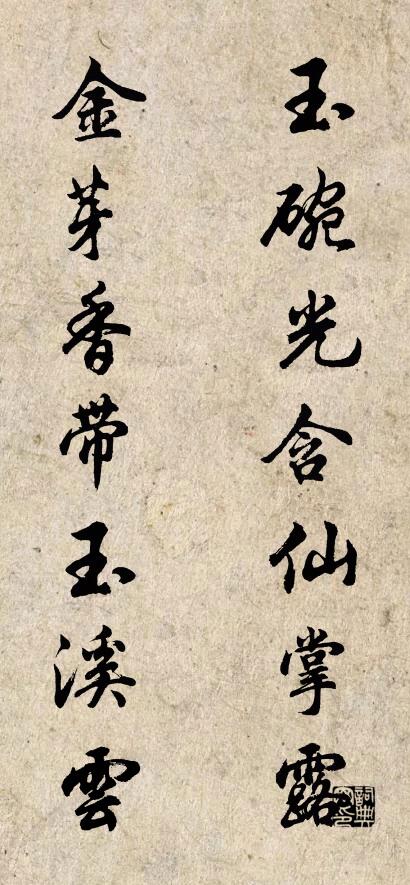 玉碗光含仙掌露
金芽香带玉溪雲